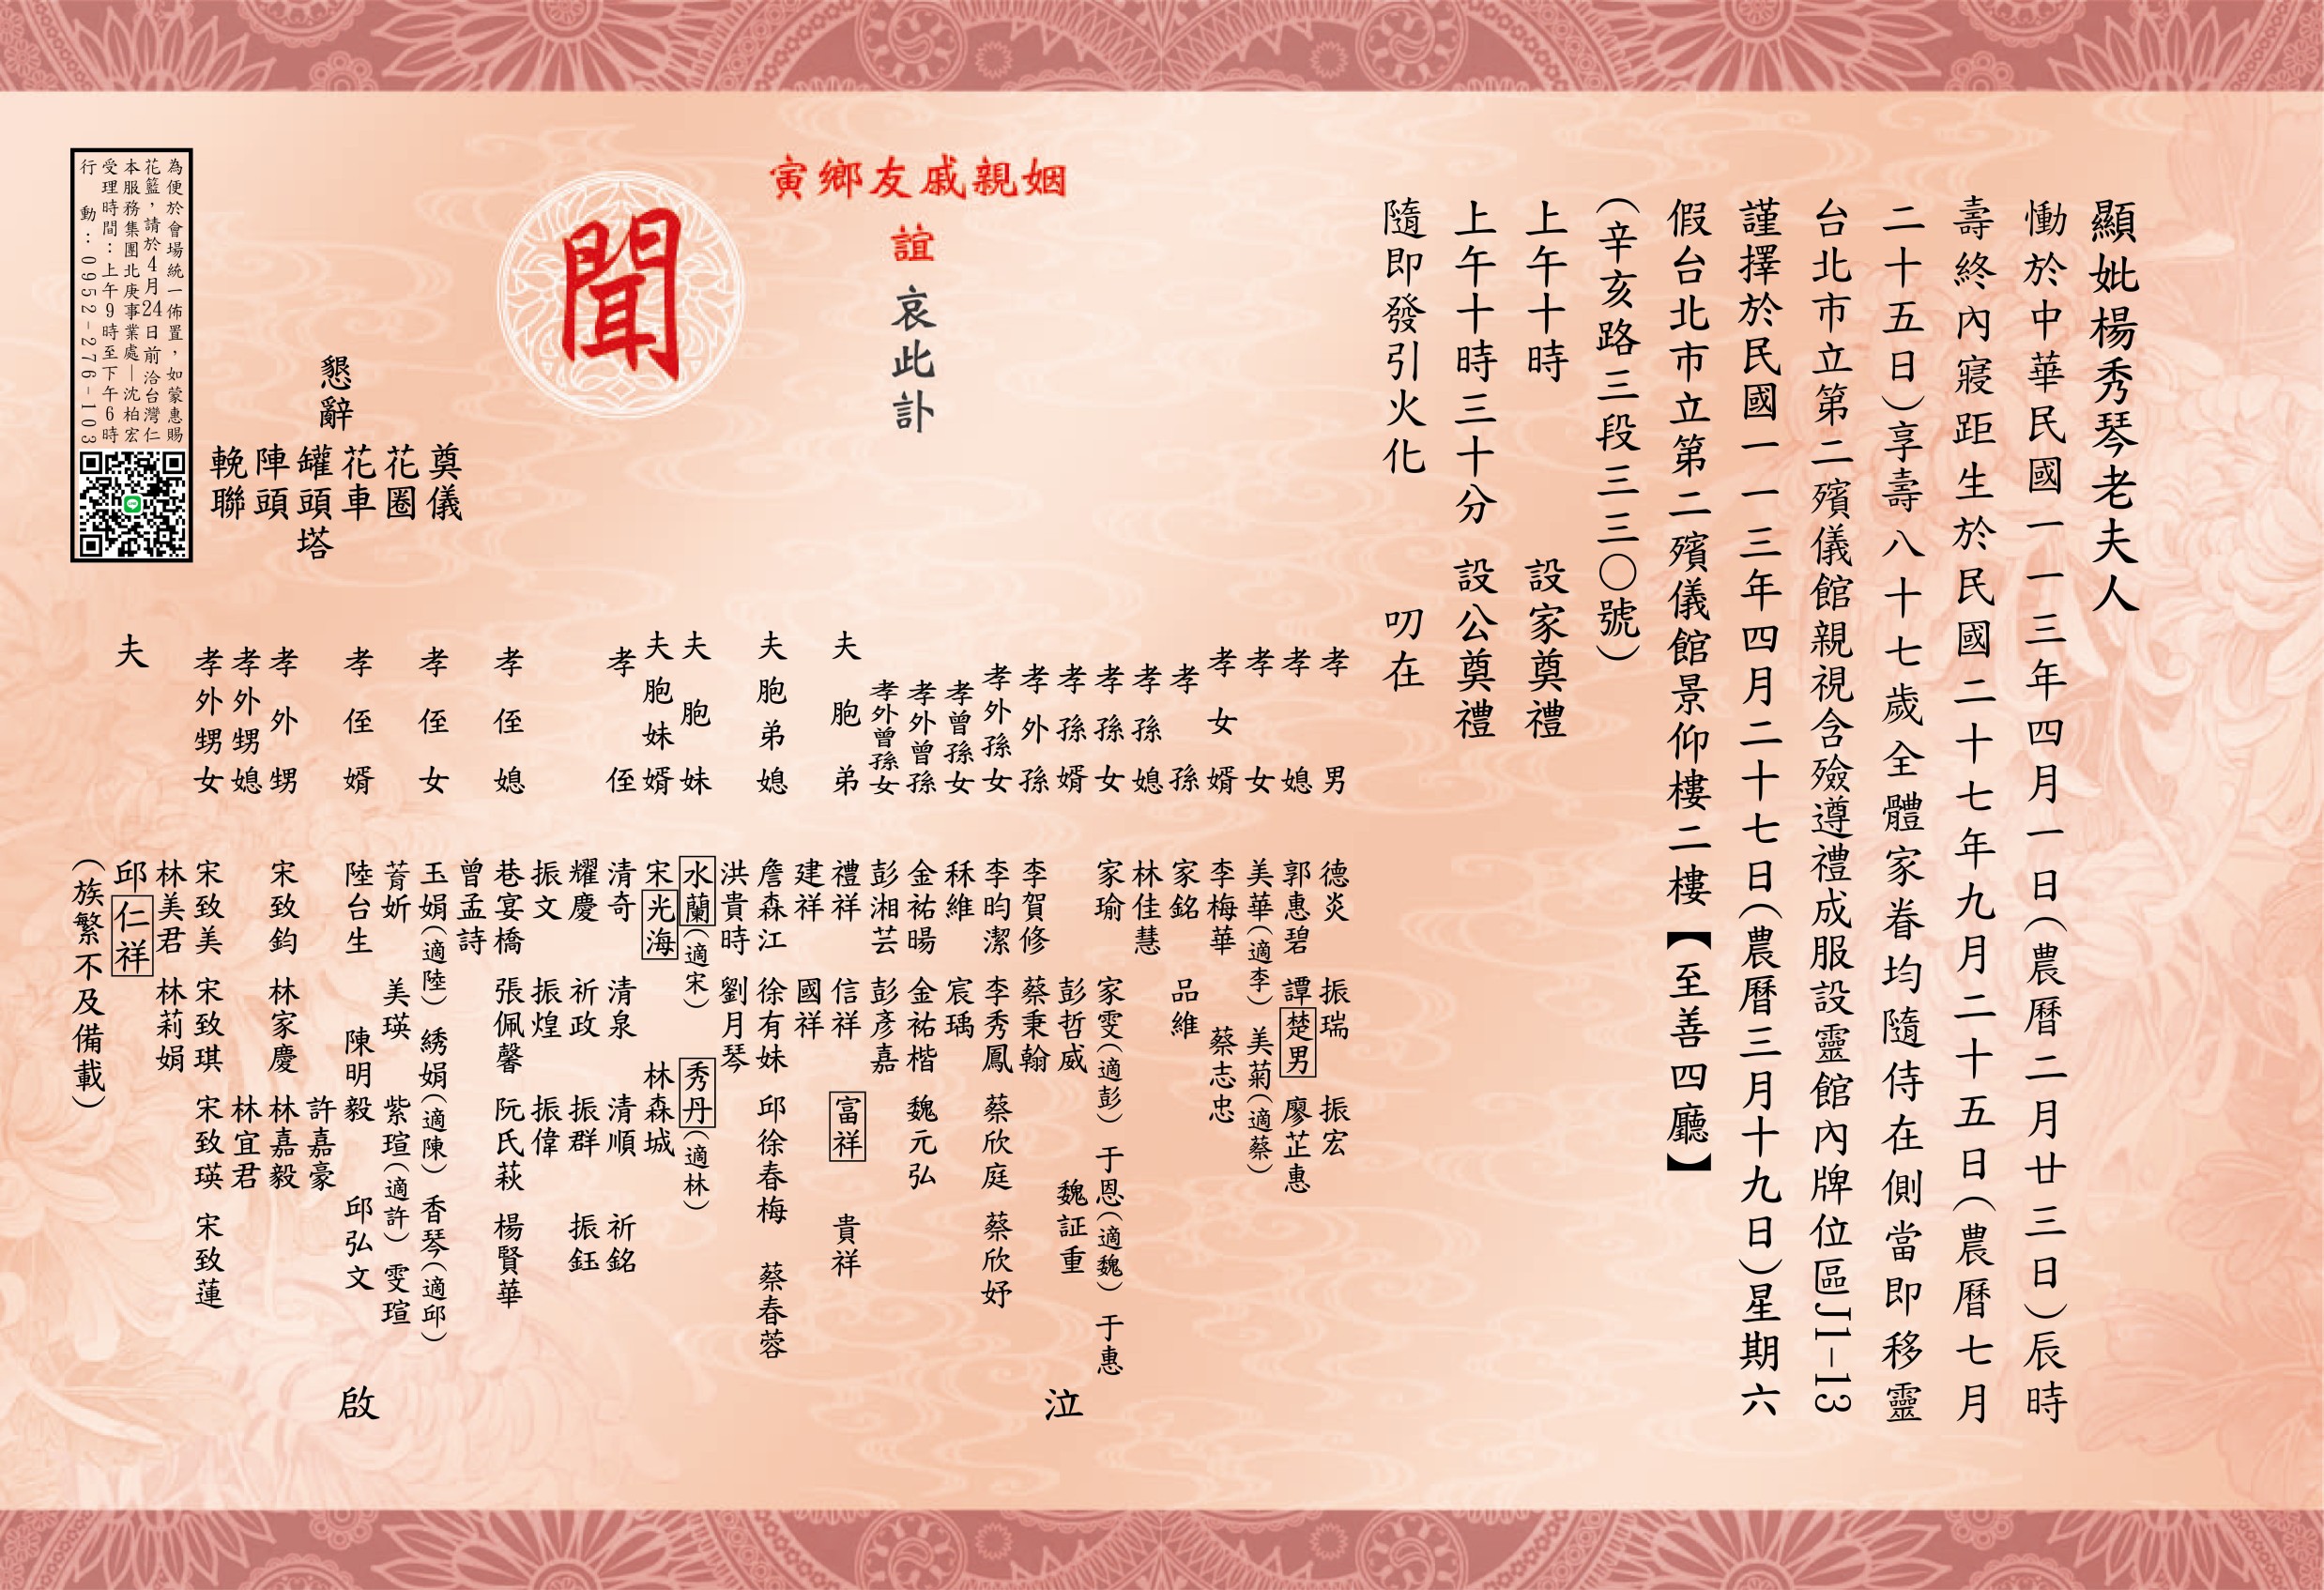 顯妣楊秀琴老夫人
慟於中華民國一一三年四月一日(農曆二月廿三日)辰時
壽終內寢距生於民國二十七年九月二十五日(農曆七月
二十五日)享壽八十七歲全體家眷均隨侍在側當即移靈
台北市立第二殯儀館親視含殮遵禮成服設靈館內牌位區J1-13
謹擇於民國一一三年四月二十七日(農曆三月十九日)星期六
假台北市立第二殯儀館景仰樓二樓【至善四廳】
(辛亥路三段三三〇號)
上午十時 設家奠禮
上午十時三十分 設公奠禮
隨即發引火化 叨在
姻親戚友鄉寅
誼
哀此訃
聞
孝男 德炎 振瑞 振宏
孝媳 郭惠碧 譚楚男 廖芷惠
孝女 美華(適李) 美菊(適蔡)
孝女婿 李梅華 蔡志忠
孝孫 家銘 品維
孝孫媳 林佳慧
孝孫女 家瑜 家雯(適彭) 于恩(適魏) 于惠
孝孫婿 彭哲威 魏証重
孝外孫 李賀修 蔡秉翰
孝外孫女 李昀潔 李秀鳳 蔡欣庭 蔡欣妤
孝曾孫女 秝維 宸瑀
孝外曾孫 金祐暘 金祐楷 魏元弘
孝外曾孫女 彭湘芸 彭彥嘉
夫胞弟 禮祥 信祥 富祥 貴祥
建祥 國祥
夫胞弟媳 詹森江 徐有妹 邱徐春梅 蔡春蓉
洪貴時 劉月琴
夫胞妹 水蘭(適宋) 秀丹(適林)
夫胞妹婿 宋光海 林森城
孝侄 清奇 清泉 清順 祈銘
耀慶 祈政 振群 振鈺
振文 振煌 振偉
孝侄媳 巷宴橋 張佩馨 阮氏萩 楊賢華
曾孟詩
孝侄女 玉娟(適陸) 綉娟(適陳) 香琴(適邱)
菁妡 美瑛 紫瑄(適許) 雯瑄
孝侄婿 陸台生 陳明毅 邱弘文
許嘉豪
孝外甥 宋致鈞 林家慶 林嘉毅
孝外甥媳 林宜君
孝外甥女 宋致美 宋致琪 宋致瑛 宋致蓮
林美君 林莉娟
夫 邱仁祥
(族繁不及備載)
泣
啟
懇辭
奠儀
花圈
花車
罐頭塔
陣頭
輓聯
為便於會場統一佈置，如蒙惠賜
花籃，請於4月24日前洽台灣仁
本服務集團北庚事業處—沈柏宏
受理時間：上午9時至下午6時
行 動：0952-276-103